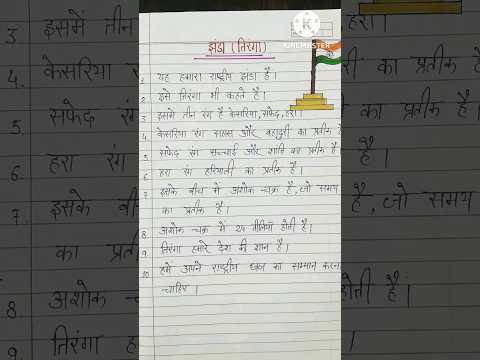 KINEMASTER
झंडा (तिरंगा)
1 यह हमारा राष्ट्रीय झंडा है।
2 इसे तिरंगा भी कहते हैं।
3 इसमें तीन रंग हैं केसरिया, सफेद, हरा।
4 केसरिया रंग साहस और बहादुरी का प्रतीक है
5 सफेद रंग सच्चाई और शांति का प्रतीक है
6 हरा रंग हरियाली का प्रतीक है।
7 इसके बीच में अशोक-चक्र है, जो समय
का प्रतीक है।
8 अशोक-चक्र में 24 तीलियाँ होती हैं।
9 तिरंगा हमारे देश की शान है।
10 हमें अपने राष्ट्रीय ध्वज का सम्मान करना
चाहिए।
3 इसमें तीन
4. केसरिया
5. सफेद रंग
6. हरा रंग
7. इसके बी
का प्रती
8 अशोक-च
9. तिरंगा ह
हरा।
का प्रतीक है
का प्रतीक है।
है।
है, जो समय
होती हैं।